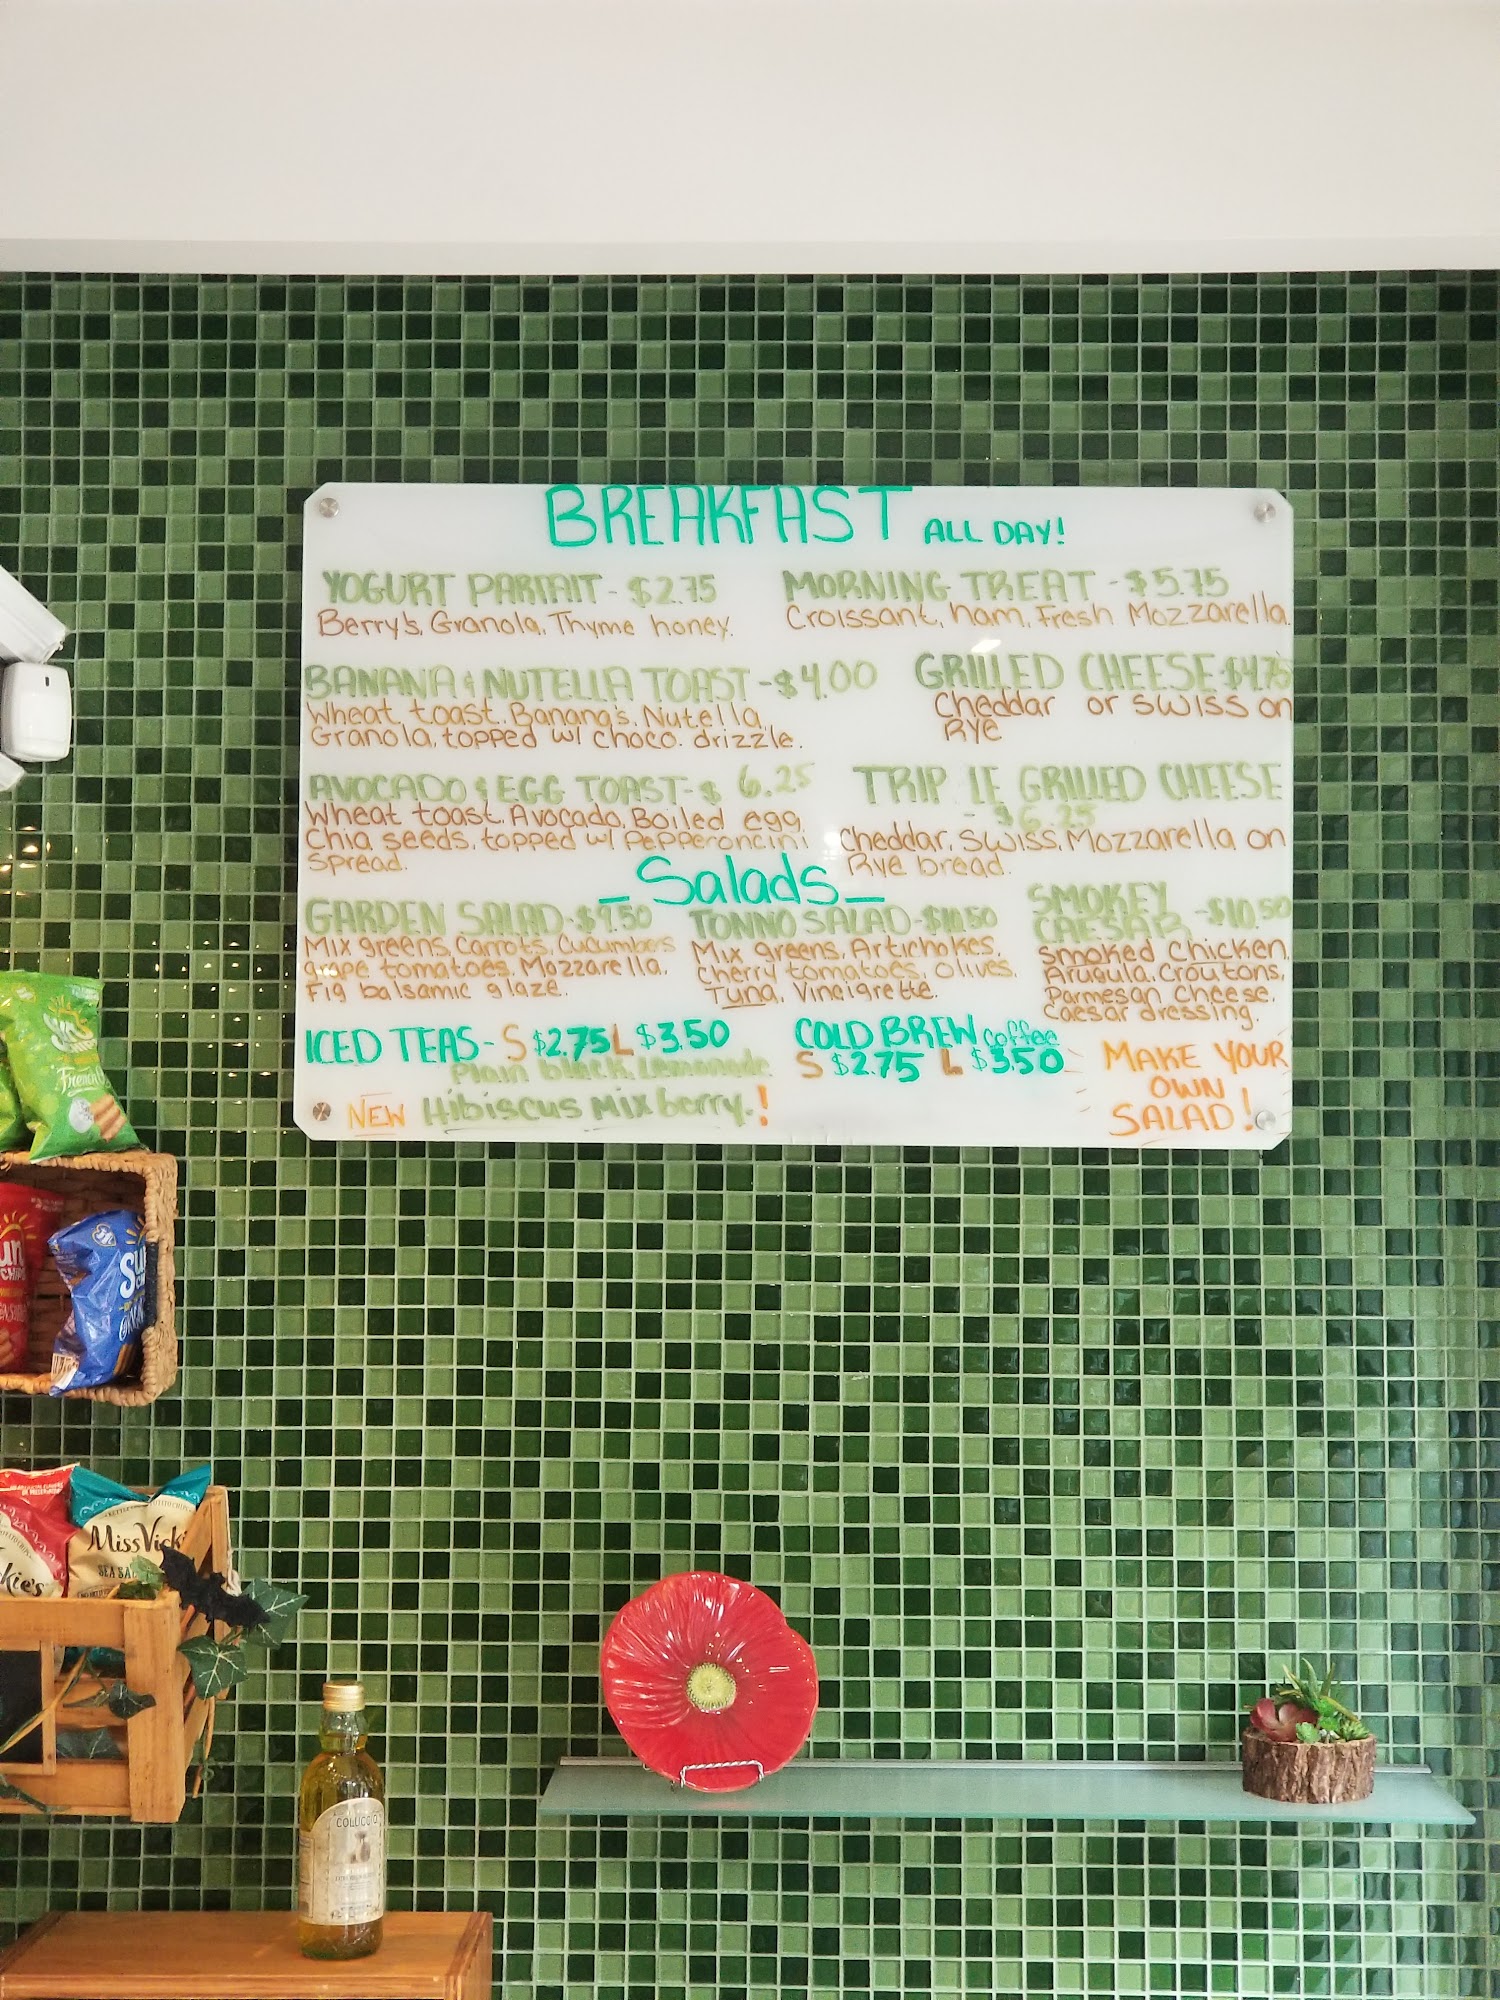 BREAKFAST ALL DAY!
YOGURT PARFAIT - $2.75
Berry's, Granola, Thyme honey.
MORNING TREAT - $5.75
Croissant, ham, Fresh Mozzarella.
BANANA & NUTELLA TOAST - $4.00
Wheat toast, Banana's, Nutella,
Granola, topped w/ choco. drizzle.
GRILLED CHEESE $4.75
Cheddar or swiss on
Rye
AVOCADO & EGG TOAST - $ 6.25
Wheat toast, Avocado, Boiled egg,
Chia seeds, topped w/ Pepperoncini
Spread.
TRIPLE GRILLED CHEESE
- $6.25
Cheddar, Swiss, Mozzarella on
Rye bread.
- Salads -
GARDEN SALAD - $9.50
Mix greens, Carrots, Cucumbers
grape tomatoes, Mozzarella,
Fig balsamic glaze.
TONNO SALAD - $10.50
Mix greens, Artichokes,
Cherry tomatoes, Olives,
Tuna, Vineigrette.
SMOKEY
CAESAR - $10.50
Smoked Chicken,
Arugula, Croutons,
Parmesan cheese,
Caesar dressing.
ICED TEAS - S $2.75 L $3.50
Plain black, Lemonade
NEW Hibiscus Mix berry. !
COLD BREW coffee
S $2.75 L $3.50
MAKE YOUR
OWN
SALAD!
Sun
French
Sun
CHIPS
Miss Vick
SEA SA
kie's
COLUCCIO